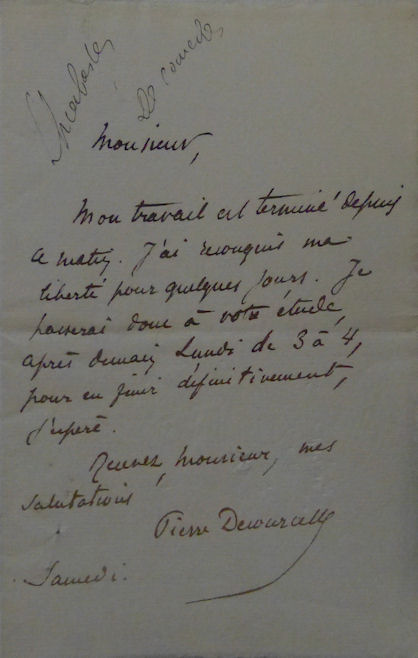 Monsieur,
Mon travail est terminé depuis
ce matin. J'ai reconquis ma
liberté pour quelques jours. Je
passerai donc à votre étude,
après demain Lundi de 3 à 4,
pour en finir définitivement,
j'espère.
Recevez, Monsieur, mes
salutations
Pierre Decourcelle
Samedi.